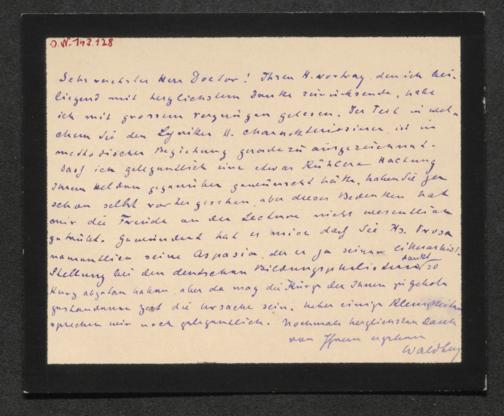 O.N. 142.128
Sehr verehrter Herr Doctor! Ihren H. vortrag, den ich bei-
liegend mit herzlichstem Danke zurücksende, habe
ich mit grossem Vergnügen gelesen. Der Teil in wel-
chem Sie den Lyriker H. charakterisieren, ist in
methodischer Beziehung geradezu ausgezeichnet.
Dass ich gelegentlich eine etwas kühlere Haltung
Ihrem Helden gegenüber gewünscht hätte, haben Sie ja
schon selbst vorhergesehen, aber dieses Bedenken hat
mir die Freude an der Lectüre nicht wesentlich
getrübt. Gewundert hat es mich dass Sie Hs. Prosa
namentlich seine Aspasia, der er ja seine
Stellung bei den deutschen Bildungsphilistern dankt so
kurz abgetan haben aber da mag die Kürze der Ihnen zu Gebote
gestandenen Zeit die Ursache sein. Ueber einige Kleinigkeiten
sprechen wir noch gelegentlich. Nochmals herzlichsten Dank
von Ihrem ergebenen
Waldberg